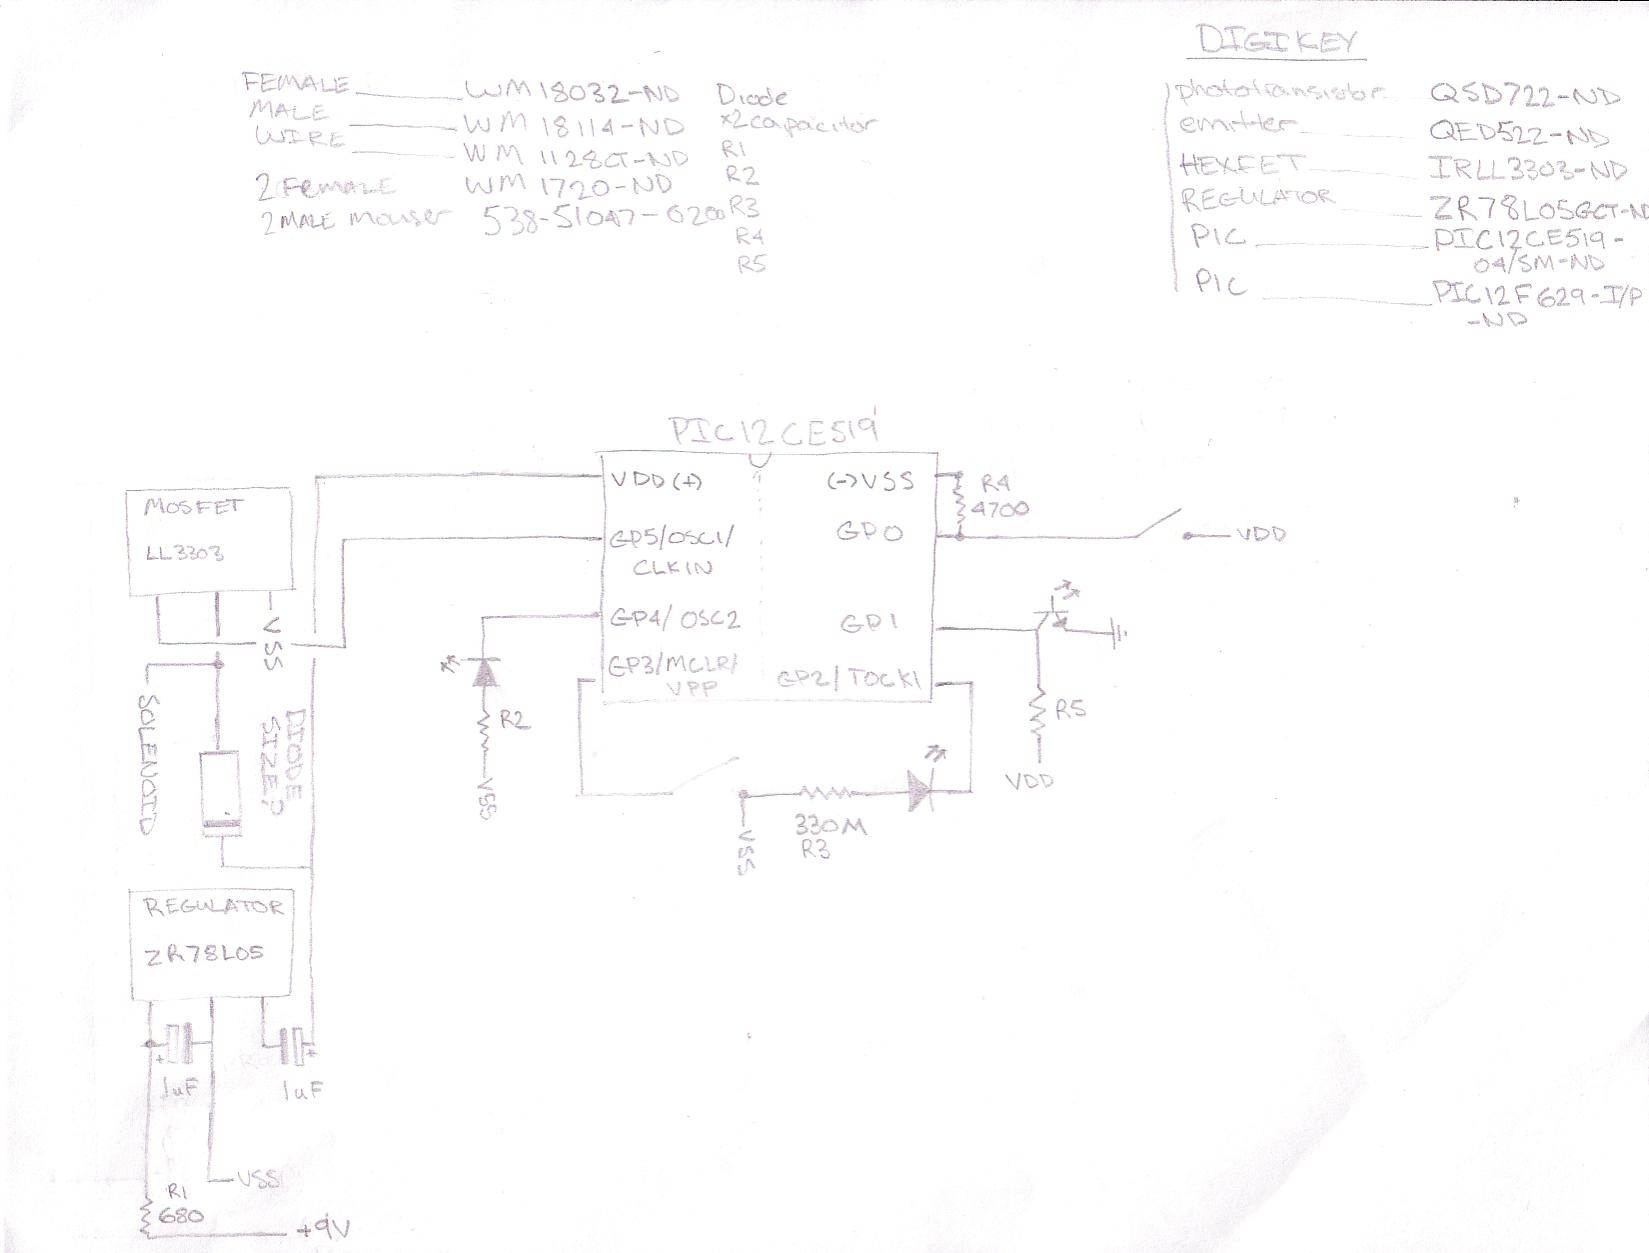 DIGIKEY
FEMALE WM18032-ND
MALE WM 18114-ND
WIRE WM 1128CT-ND
2 FEMALE WM 1720-ND
2 MALE mouser 538-51047-0200
Diode
x2 capacitor
R1
R2
R3
R4
R5
phototransistor QSD722-ND
emitter QED522-ND
HEXFET IRLL3303-ND
REGULATOR ZR78L05GCT-ND
PIC PIC12CE519-
04/SM-ND
PIC PIC12F629-I/P
-ND
PIC12CE519
VDD (+)
GP5/OSC1/
CLKIN
GP4/ OSC2
GP3/MCLR/
VPP
(-)VSS
GPO
GP1
GP2/TOCK1
R4
4700
VDD
R5
VDD
R2
VSS
330M
R3
VSS
MOSFET
LL3303
VSS
SOLENOID
DIODE
SIZE?
REGULATOR
ZR78L05
+
1uF
+
1uF
VSS
R1
680
+9V